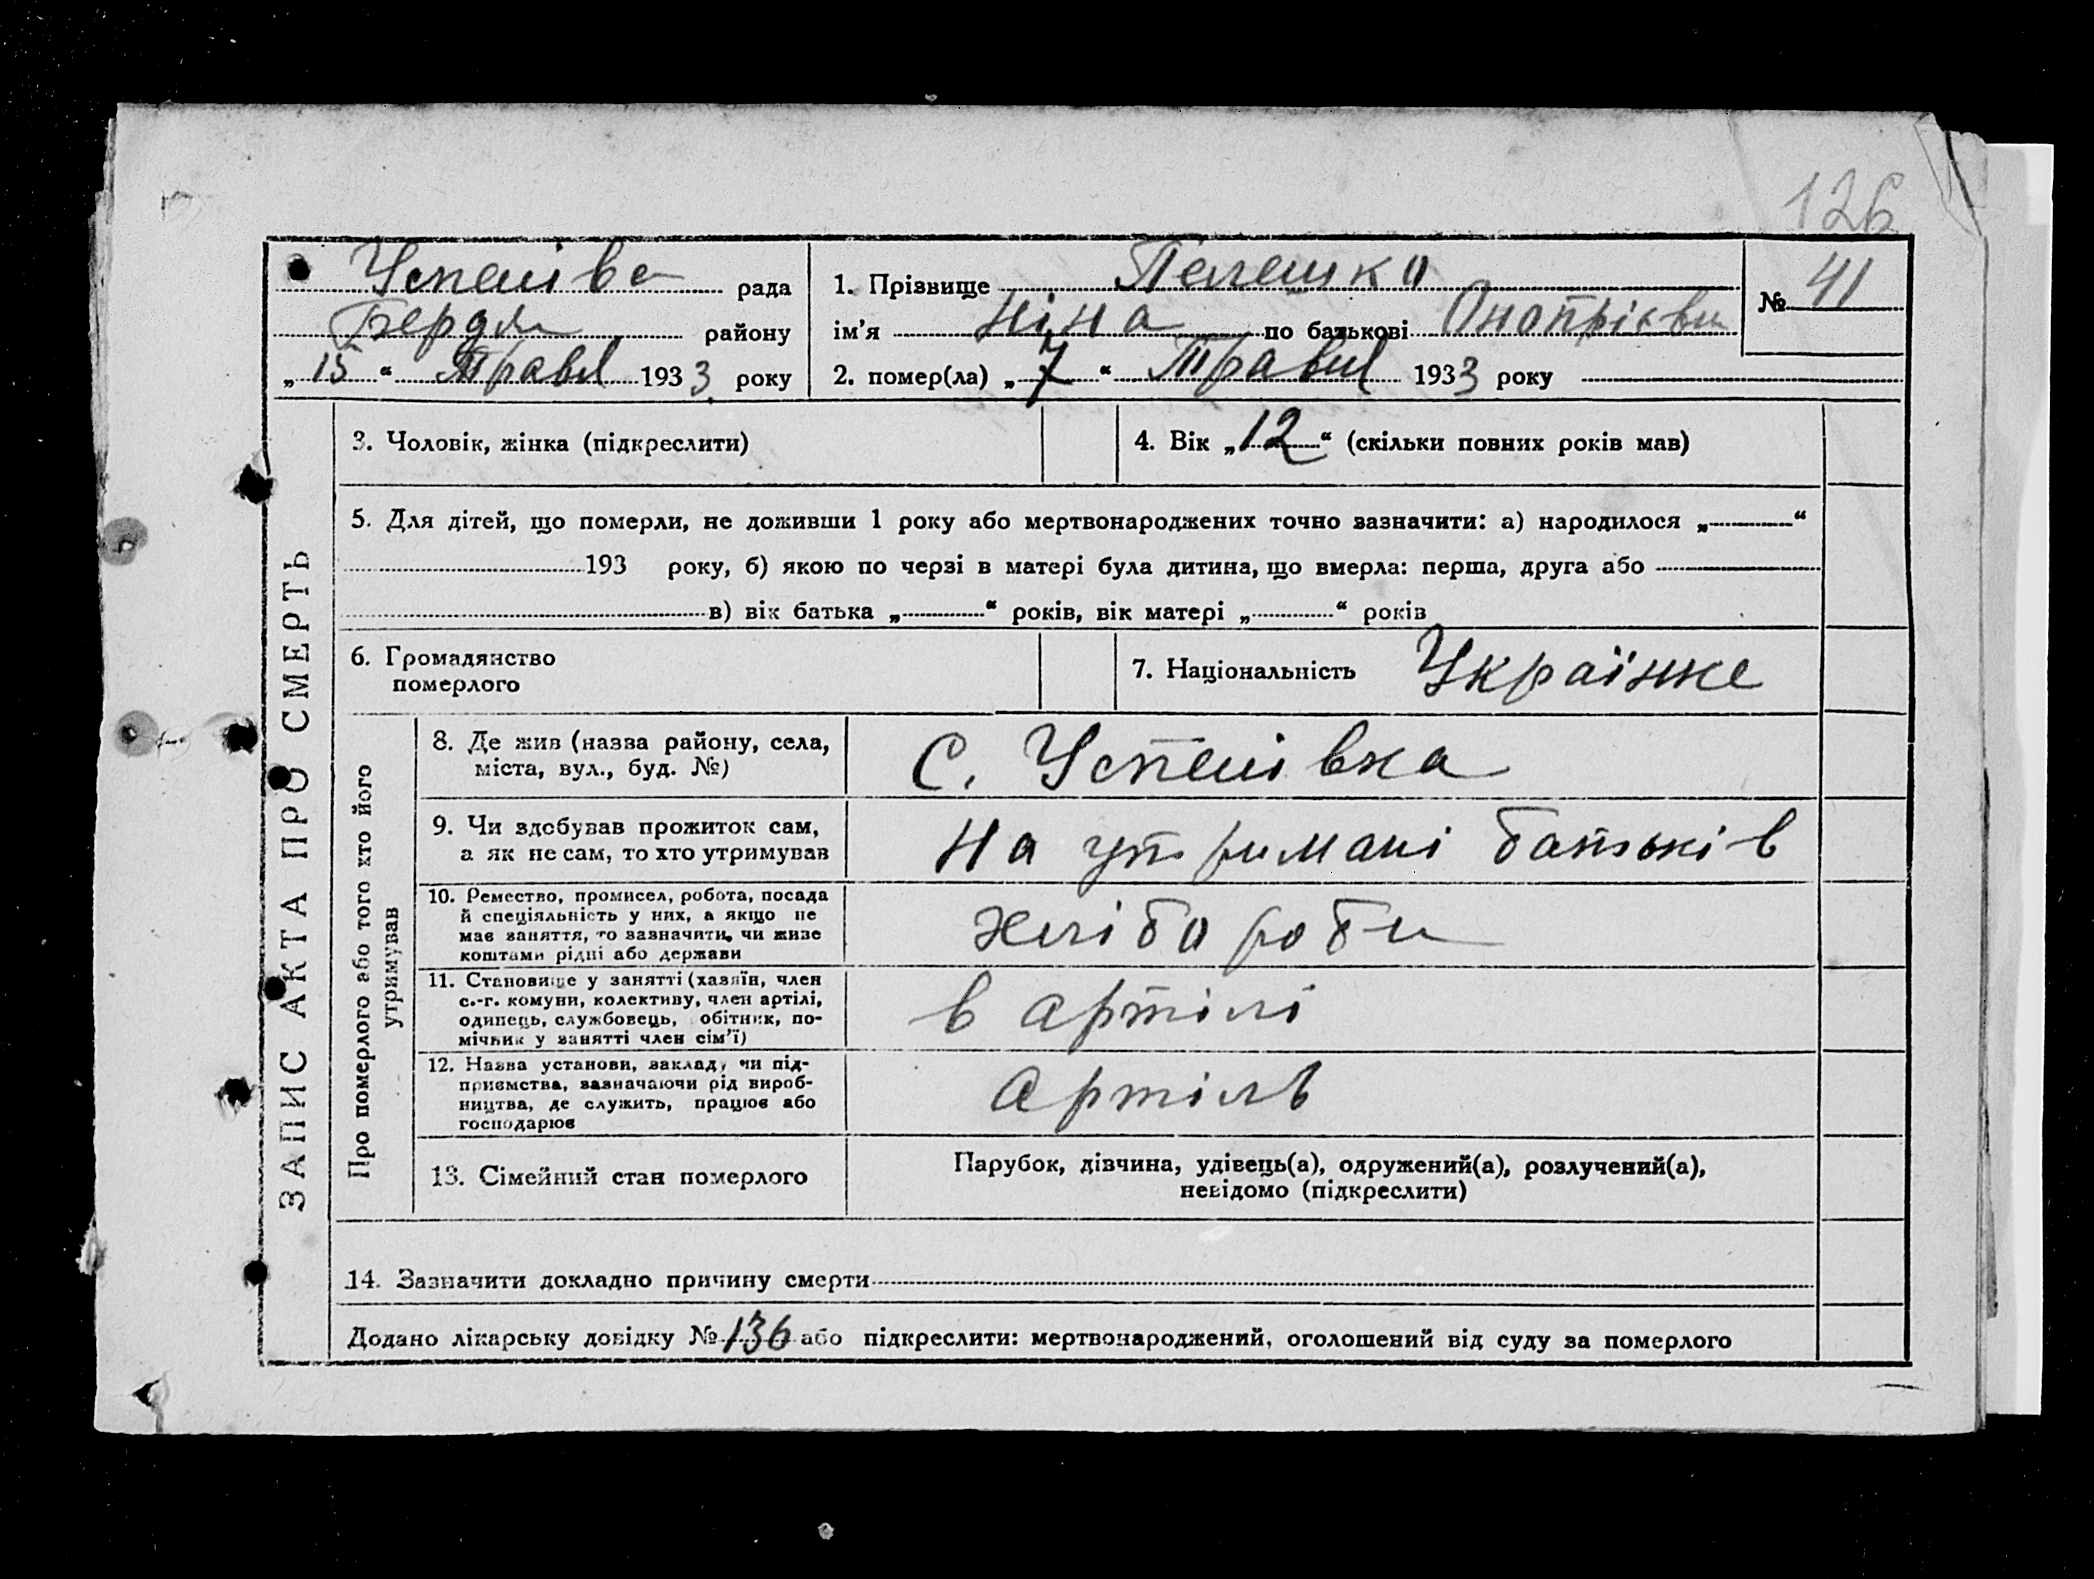 126
Успеніве рада
Бердян району
„ 15 “ Травл 1933 року
1. Прізвище Пелешко
ім’я Ніна по батькові Онопрієви
2. помер(ла) „ 7 “ Травл 1933 року
№ 41
ЗАПИС АКТА ПРО СМЕРТЬ
3. Чоловік, жінка (підкреслити)
4. Вік „ 12 “ (скільки повних років мав)
5. Для дітей, що померли, не доживши 1 року або мертвонароджених точно зазначити: а) народилося „ “
193 року, б) якою по черзі в матері була дитина, що вмерла: перша, друга або
в) вік батька „ “ років, вік матері „ “ років
6. Громадянство
померлого
7. Національність Українке
Про померлого або того хто його
утримував
8. Де жив (назва району, села,
міста, вул., буд. №)
С. Успенівка
9. Чи здобував прожиток сам,
а як не сам, то хто утримував
На утримані батьків
10. Ремество, промисел, робота, посада
й спеціяльність у них, а якщо не
має заняття, то зазначити, чи живе
коштами рідні або держави
Хліборобы
11. Становище у занятті (хазяїн, член
с.-г. комуни, колективу, член артілі,
одинець, службовець, обітник, по-
мічник у занятті член сім’ї)
в артілі
12. Назва установи, закладу чи під-
приємства, зазначаючи рід вироб-
ництва, де служить, працює або
господарює
Артіль
13. Сімейний стан померлого
Парубок, дівчина, удівець(а), одружений(а), розлучений(а),
невідомо (підкреслити)
14. Зазначити докладно причину смерти
Додано лікарську довідку № 136 або підкреслити: мертвонароджений, оголошений від суду за померлого